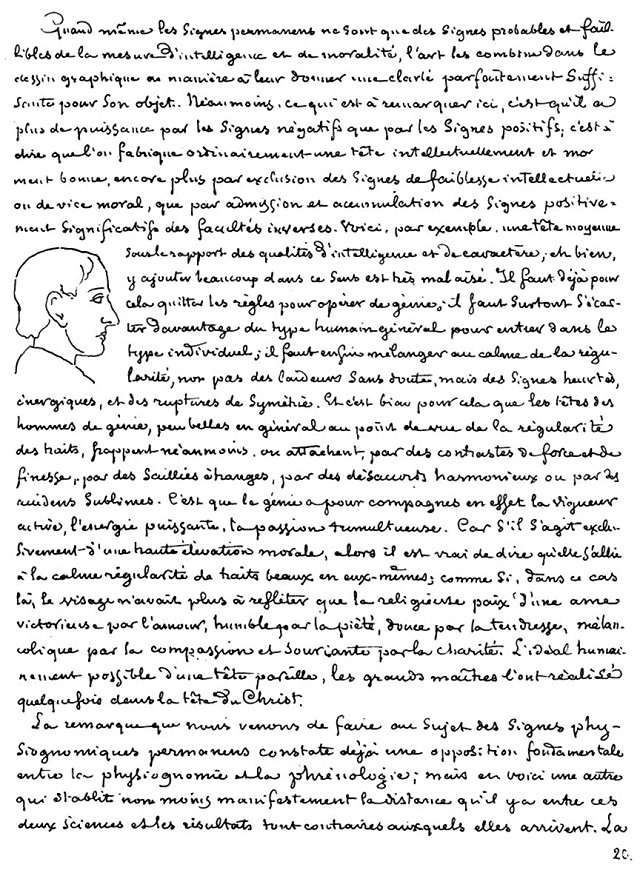 Quand même les signes permanens ne sont que des signes probables et fail-
libles de la mesure d'intelligence et de moralité, l'art les combine dans le
dessin graphique de manière à leur donner une clarté parfaitement suffi-
sante pour son objet. Néanmoins, ce qui est à remarquer ici, c'est qu'il a
plus de puissance par les signes négatifs que par les signes positifs; c'est à
dire que l'on fabrique ordinairement une tête intellectuellement et mor
ment bonne, encore plus par exclusion des signes de faiblesse intellectuelle
ou de vice moral, que par admission et accumulation des signes positive-
ment significatifs des facultés inverses. Voici, par exemple, une tête moyenne
sous le rapport des qualités d'intelligence et de caractère; eh bien,
y ajouter beaucoup dans ce sens est très mal aisé. Il faut déjà pour
cela quitter les règles pour opérer de génie; il faut surtout s'écar-
ter davantage du type humain général pour entrer dans le
type individuel; il faut enfin mélanger au calme de la régu-
larité, non pas des laideurs sans doute, mais des signes heurtés,
énergiques, et des ruptures de symétrie. Et c'est bien pour cela que les têtes des
hommes de génie, peu belles en général au point de vue de la régularité
des traits, frappent néanmoins, ou attachent, par des contrastes de force et de
finesse, par des saillies étranges, par des désaccords harmonieux ou par des
accidens sublimes. C'est que le génie a pour compagnes en effet la vigueur
active, l'énergie puissante, la passion tumultueuse. Car s'il s'agit exclu-
sivement d'une haute élévation morale, alors il est vrai de dire qu'elle s'allie
à la calme régularité de traits beaux en eux-mêmes; comme si, dans ce cas
là, le visage n'avait plus à refléter que la religieuse paix d'une ame
victorieuse par l'amour, humble par la piété, douce par la tendresse, mélan-
colique par la compassion et souriante par la charité. L'idéal humai-
nement possible d'une tête pareille, les grands maîtres l'ont réalisé
quelquefois dans la tête du Christ.
La remarque que nous venons de faire au sujet des signes phy-
siognomiques permanens constate déjà une opposition fondamentale
entre la physiognomie et la phrénologie; mais en voici une autre
qui établit non moins manifestement la distance qu'il y a entre ces
deux sciences et les résultats tout contraires auxquels elles arrivent. La
20.